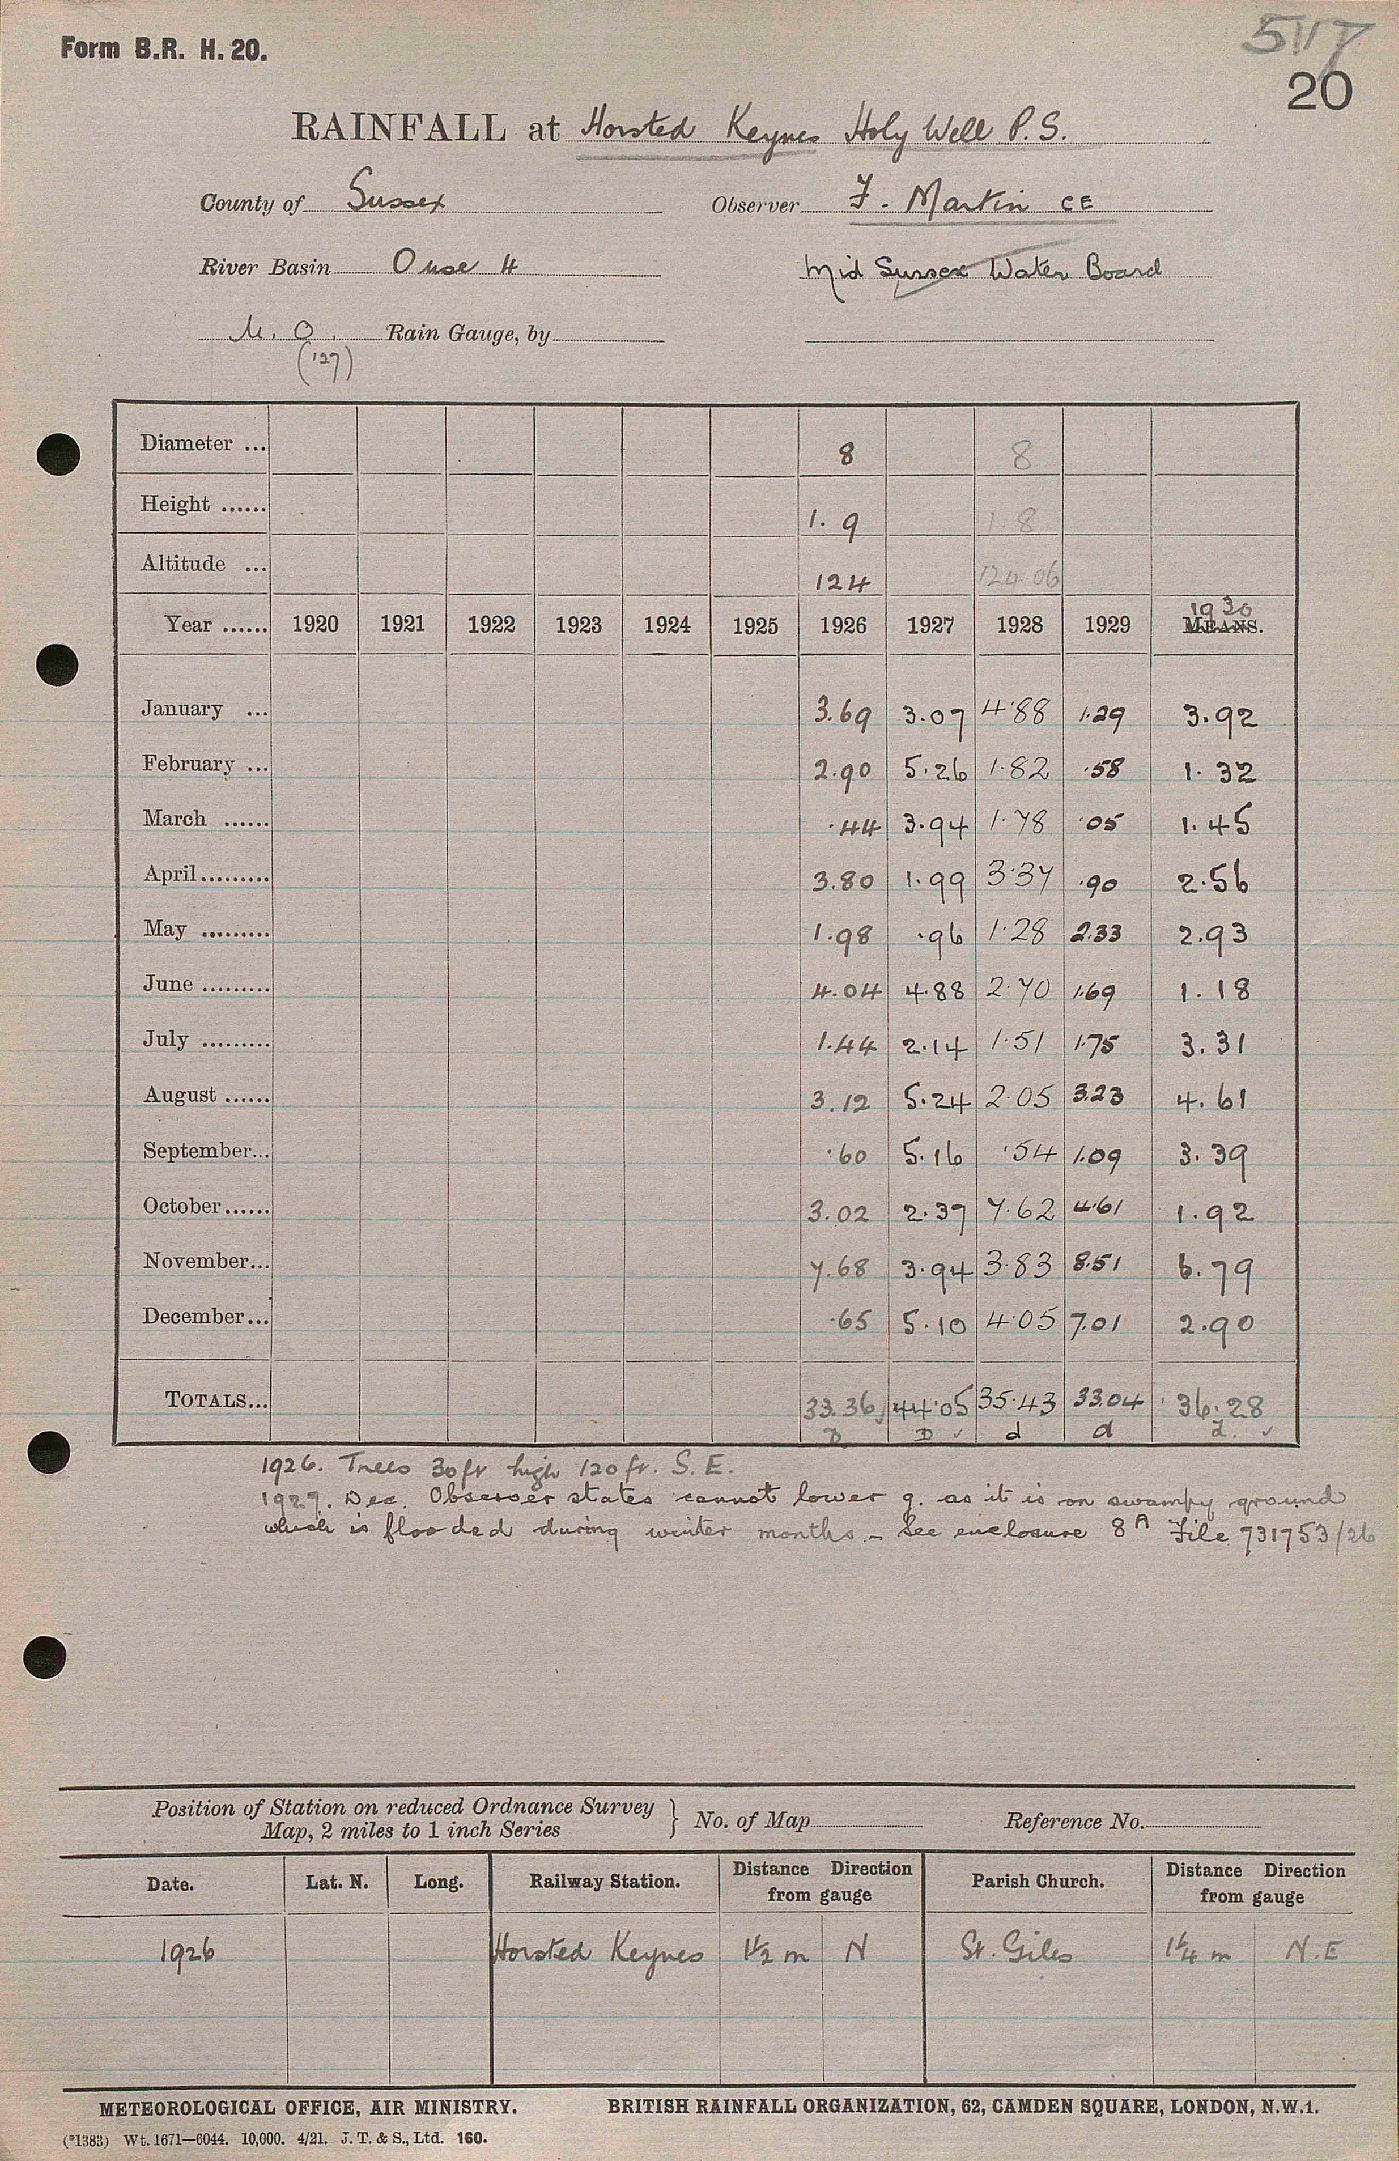 Form B.R. H. 20.
5117
20
RAINFALL at Horsted Keynes Holy Well P.S.
County of Sussex Observer F. Martin CE
River Basin Ouse 4 Mid Sussex Water Board
M.O. Rain Gauge, by
('27)
Diameter ... 8 8
Height ...... 1.9 1.8
Altitude ... 124 124.06
1930
Year ...... 1920 1921 1922 1923 1924 1925 1926 1927 1928 1929 MEANS.
January ... 3.69 3.07 4.88 1.29 3.92
February ... 2.90 5.26 1.82 .58 1.32
March ...... .44 3.94 1.78 .05 1.45
April......... 3.80 1.99 3.37 .90 2.56
May ......... 1.98 .96 1.28 2.33 2.93
June ......... 4.04 4.88 2.70 1.69 1.18
July ......... 1.44 2.14 1.51 1.75 3.31
August ...... 3.12 5.24 2.05 3.23 4.61
September... .60 5.16 .54 1.09 3.39
October...... 3.02 2.37 7.62 4.61 1.92
November... 7.68 3.94 3.83 8.51 6.79
December... .65 5.10 4.05 7.01 2.90
TOTALS... 33.36 44.05 35.43 33.04 36.28
D D ✓ d d d. ✓
1926. Trees 30ft high 120ft. S.E.
1927. Dec. Observer states cannot lower g. as it is on swampy ground
which is flooded during winter months – See enclosure 8A File 731753/26
Position of Station on reduced Ordnance Survey
Map, 2 miles to 1 inch Series } No. of Map Reference No.
Date. Lat. N. Long. Railway Station. Distance Direction from gauge Parish Church. Distance Direction from gauge
1926 Horsted Keynes 1½ m N St. Giles 1¼ m N.E
METEOROLOGICAL OFFICE, AIR MINISTRY. BRITISH RAINFALL ORGANIZATION, 62, CAMDEN SQUARE, LONDON, N.W.1.
(*1383) Wt. 1671—6044. 10,000. 4/21. J. T. & S., Ltd. 160.